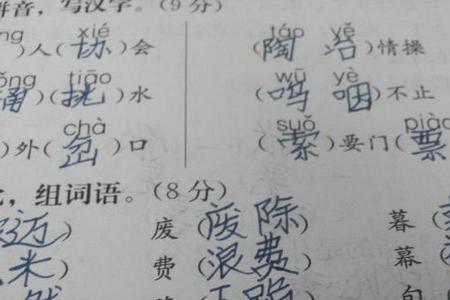 拼音，写汉字。（9分）
ng xié táo yě
）人（协）会 （陶冶）情操
ǒng tiāo wū yè
（挑）水 （呜咽）不止
chà suǒ piào
）外（岔）口 （索）要门（票
，组词语。（8分）
迈） 废（废除） 暮（
米） 费（浪费） 幕（